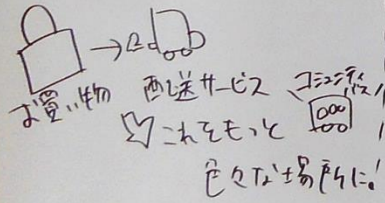 お買い物
配送サービス
コミュニティ
バス
これをもっと
色々な場所に!